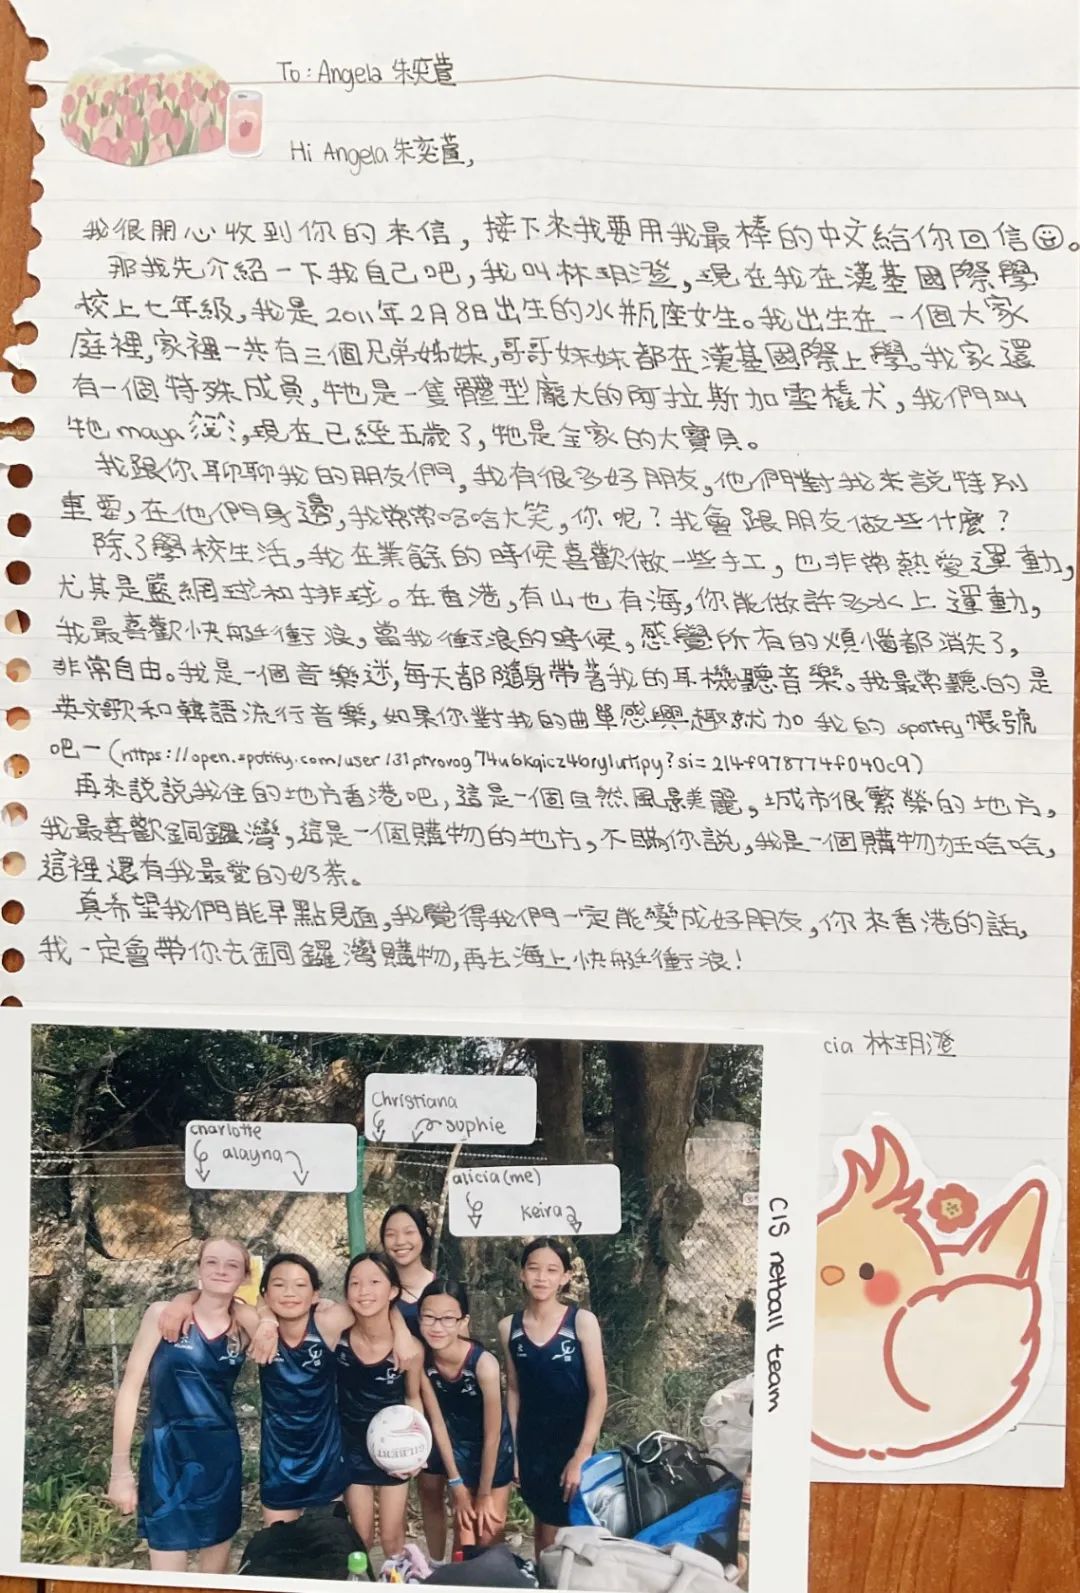 To: Angela 朱奕萱
Hi Angela 朱奕萱,
我很開心收到你的來信，接下來我要用我最棒的中文給你回信。
那我先介紹一下我自己吧，我叫林玥澄，現在我在漢基國際學
校上七年級，我是2011年2月8日出生的水瓶座女生。我出生在一個大家
庭裡，家裡一共有三個兄弟姊妹，哥哥妹妹都在漢基國際上學。我家還
有一個特殊成員，牠是一隻體型龐大的阿拉斯加雪橇犬，我們叫
牠maya，現在已經五歲了，牠是全家的大寶貝。
我跟你聊聊我的朋友們，我有很多好朋友，他們對我來說特別
重要，在他們身邊，我常常哈哈大笑，你呢？我會跟朋友做些什麼？
除了學校生活，我在業餘的時候喜歡做一些手工，也非常熱愛運動，
尤其是籃網球和排球。在香港，有山也有海，你能做許多水上運動，
我最喜歡快艇衝浪，當我衝浪的時候，感覺所有的煩惱都消失了，
非常自由。我是一個音樂迷，每天都隨身帶著我的耳機聽音樂。我最常聽的是
英文歌和韓語流行音樂，如果你對我的曲單感興趣就加我的spotify帳號
吧－(https://open.spotify.com/user/
再來說說我住的地方香港吧，這是一個自然風景美麗，城市很繁榮的地方，
我最喜歡銅鑼灣，這是一個購物的地方，不瞞你說，我是一個購物狂哈哈，
這裡還有我最愛的奶茶。
真希望我們能早點見面，我覺得我們一定能變成好朋友，你來香港的話，
我一定會帶你去銅鑼灣購物，再去海上快艇衝浪！
cia 林玥澄
Christiana
sophie
charlotte
alayna
alicia (me)
Keira
CIS netball team
GILBERT